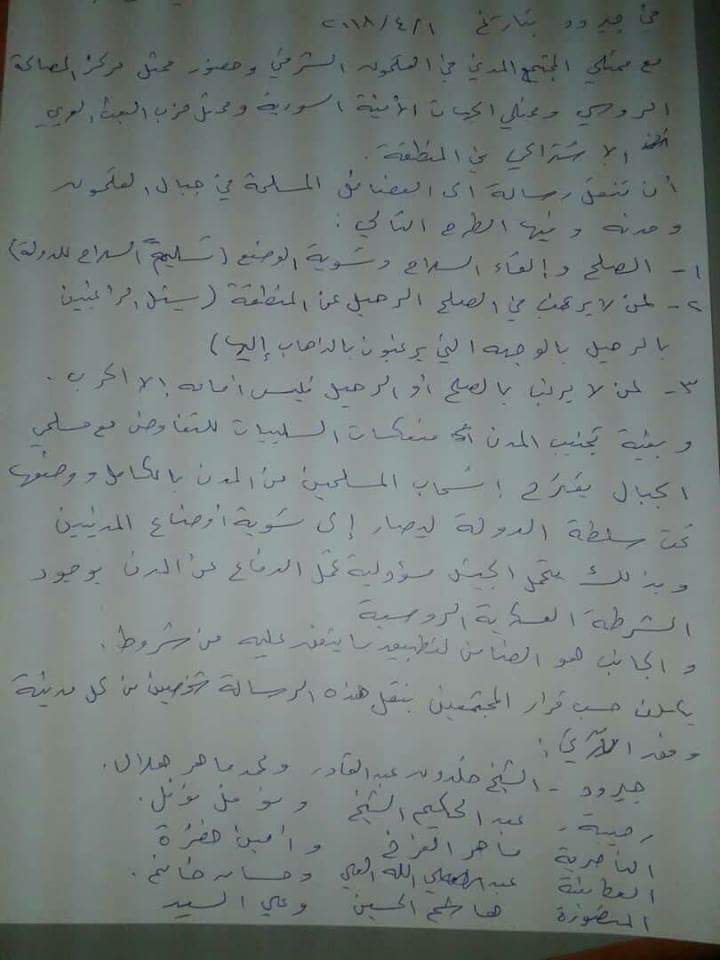 في جيرود بتاريخ ٢٠١٨/٤/١
مع ممثلي المجتمع المدني في القلمون الشرقي وحضور ممثل مركز المصالحة
الروسي وممثلي الجهات الأمنية السورية وممثل حزب البعث العربي
الاشتراكي في المنطقة.
أن تنقل رسالة الى الفصائل المسلحة في جبال القلمون
ومدنه وفيها الطرح التالي:
١- الصلح وإلقاء السلاح وتسوية الوضع (تسليم السلاح للدولة)
٢- لمن لا يرغب في الصلح الرحيل عن المنطقة (سينقل الراغبين
بالرحيل بالوجهه التي يرغبون بالذهاب إليها)
٣- لمن لا يرغب بالصلح أو الرحيل فليس أمامه إلا الحرب.
وبغية تجنيب المدن منعكسات السلبيات للتفاوض مع مسلحي
الجبال يقترح إنسحاب المسلحين من المدن بالكامل ووضعها
تحت سلطة الدولة ليصار إلى تسوية أوضاع المدنيين
وبذلك يتحمل الجيش مسؤولية تحمل الدفاع عن المدن بوجود
الشرطة العسكرية الروسية
والجانب هو الضامن لتطبيق ما يتفق عليه من شروط.
حسب قرار المجتمعين بنقل هذه الرسالة شخصين من كل مدينة
وفق الآتي:
جيرود - الشيخ خلدون عبد القادر ومحمد ماهر هلال.
رحيبة - عبد الحكيم الشيخ ونوفل نوفل.
الناصرية ماهر الفرخ وأمين خضرة
العطنة الله العلي وحسان غانم.
المنصورة هاشم الحسين وعلي السيد